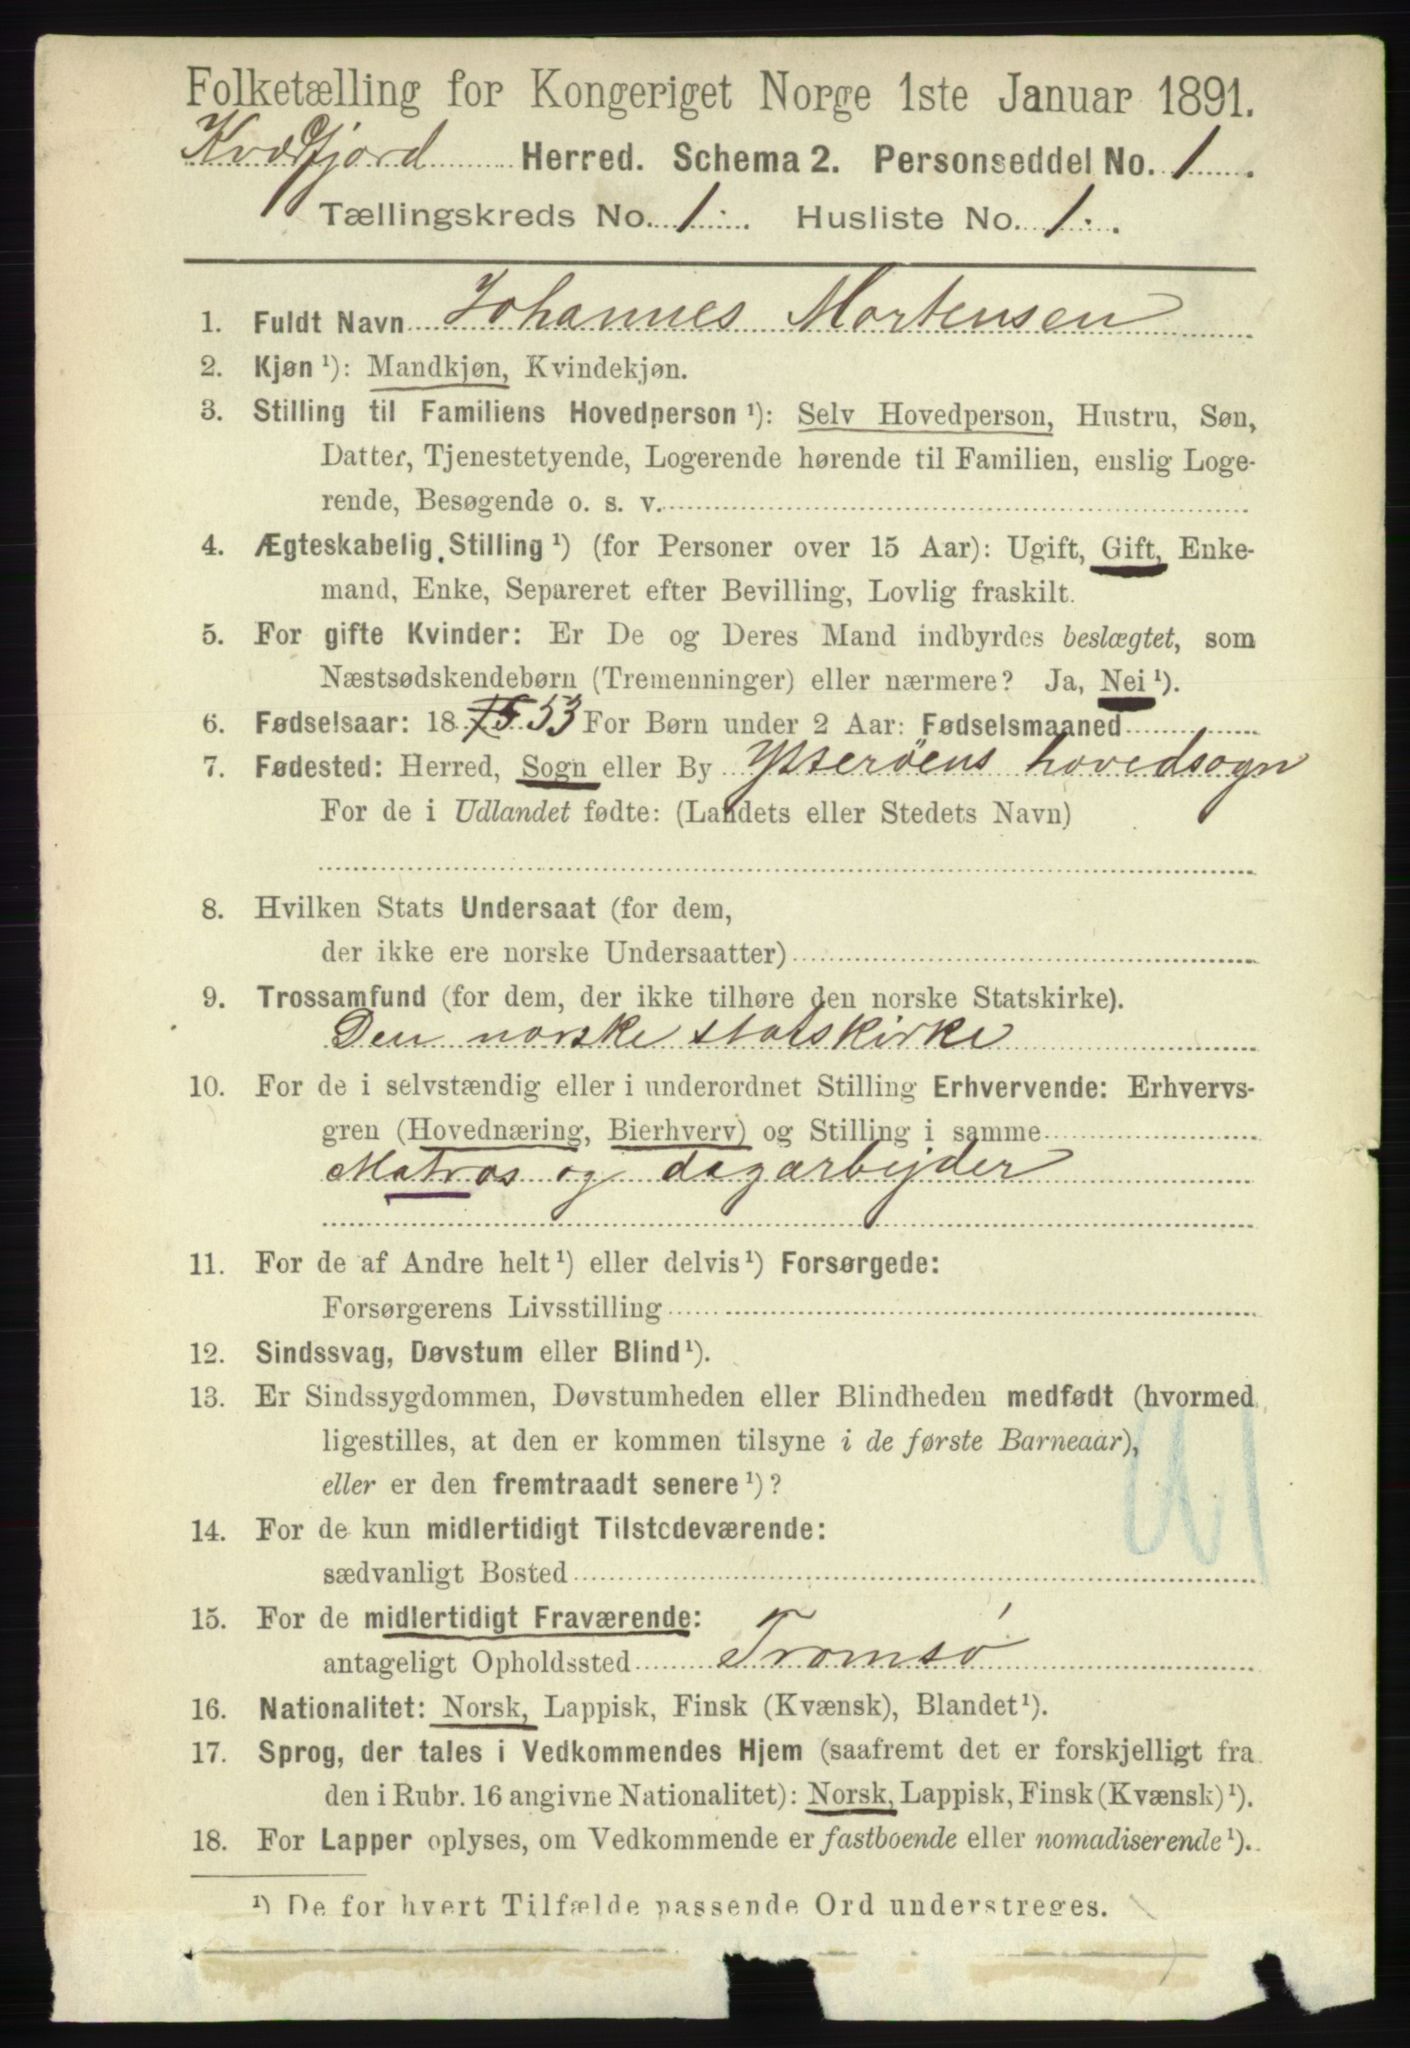 Folketælling for Kongeriget Norge 1ste Januar 1891.
Kvædfjord Herred. Schema 2. Personseddel No. 1
Tællingskreds No. 1. Husliste No. 1.
1. Fuldt Navn Johannes Mortensen
2. Kjøn ¹): Mandkjøn, Kvindekjøn.
3. Stilling til Familiens Hovedperson ¹): Selv Hovedperson, Hustru, Søn,
Datter, Tjenestetyende, Logerende hørende til Familien, enslig Loge-
rende, Besøgende o. s. v.
4. Ægteskabelig Stilling ¹) (for Personer over 15 Aar): Ugift, Gift, Enke-
mand, Enke, Separeret efter Bevilling, Lovlig fraskilt.
5. For gifte Kvinder: Er De og Deres Mand indbyrdes beslægtet, som
Næstsødskendebørn (Tremenninger) eller nærmere? Ja, Nei ¹).
6. Fødselsaar: 18 53 For Børn under 2 Aar: Fødselsmaaned
7. Fødested: Herred, Sogn eller By Ytterøens hovedsogn
For de i Udlandet fødte: (Landets eller Stedets Navn)
8. Hvilken Stats Undersaat (for dem,
der ikke ere norske Undersaatter)
9. Trossamfund (for dem, der ikke tilhøre den norske Statskirke).
Den norske statskirke
10. For de i selvstændig eller i underordnet Stilling Erhvervende: Erhvervs-
gren (Hovednæring, Bierhverv) og Stilling i samme
Matros og dagarbejder
11. For de af Andre helt ¹) eller delvis ¹) Forsørgede:
Forsørgerens Livsstilling
12. Sindssvag, Døvstum eller Blind ¹).
13. Er Sindssygdommen, Døvstumheden eller Blindheden medfødt (hvormed
ligestilles, at den er kommen tilsyne i de første Barneaar),
eller er den fremtraadt senere ¹)?
14. For de kun midlertidigt Tilstedeværende:
sædvanligt Bosted
15. For de midlertidigt Fraværende:
antageligt Opholdssted Tromsø
16. Nationalitet: Norsk, Lappisk, Finsk (Kvænsk), Blandet ¹).
17. Sprog, der tales i Vedkommendes Hjem (saafremt det er forskjelligt fra
den i Rubr. 16 angivne Nationalitet): Norsk, Lappisk, Finsk (Kvænsk) ¹).
18. For Lapper oplyses, om Vedkommende er fastboende eller nomadiserende ¹).
¹) De for hvert Tilfælde passende Ord understreges.